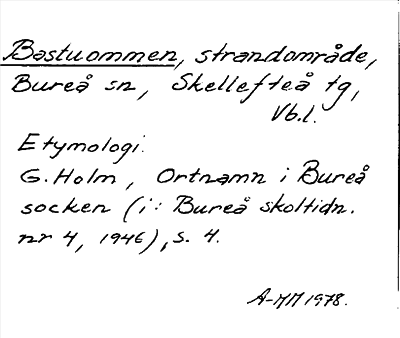 Bastuommen, strandområde,
Bureå sn, Skellefteå tg,
Vb.l.
Etymologi:
G. Holm, Ortnamn i Bureå
socken (i: Bureå skoltidn.
nr 4, 1946), s. 4.
A-MM 1978.